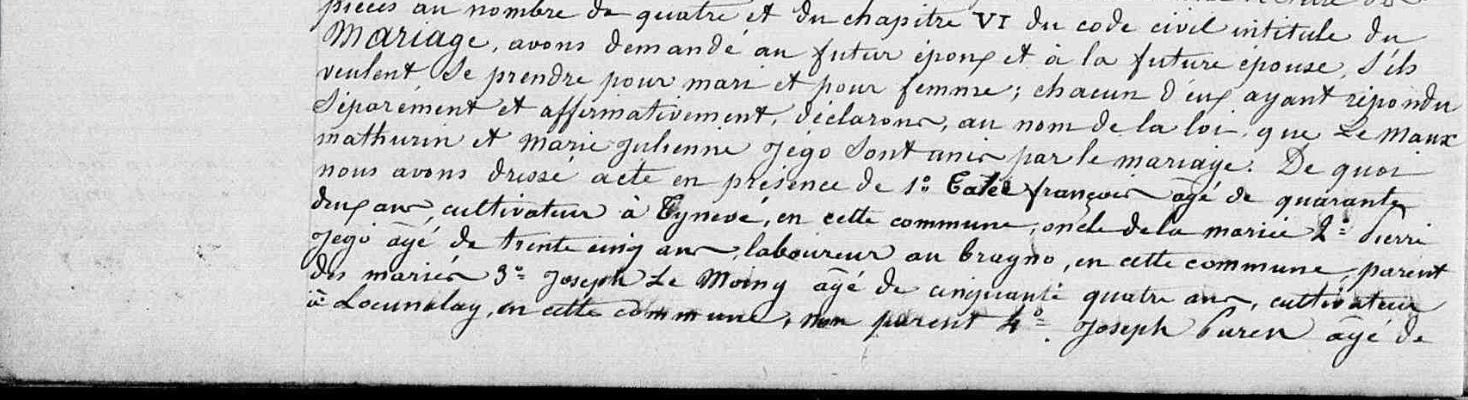 pièces au nombre de quatre et du chapitre VI du code civil intitulé du
Mariage, avons demandé au futur époux et à la future épouse, s'ils
veulent se prendre pour mari et pour femme; chacun d'eux ayant répondu
séparément et affirmativement, déclarons, au nom de la loi, que Le Maux
mathurin et Marie Julienne Jégo sont unis par le mariage. De quoi
nous avons dressé acte en présence de 1º françois âgé de quarante
deux ans, cultivateur à Tynevé, en cette commune, oncle de la mariée 2º Pierre
Jégo âgé de trente cinq ans, laboureur au bragno, en cette commune, parent
des mariés 3º Joseph Le Moing âgé de cinquante quatre ans, cultivateur
à Locunolay, en cette commune, non parent 4º Joseph Puren âgé de